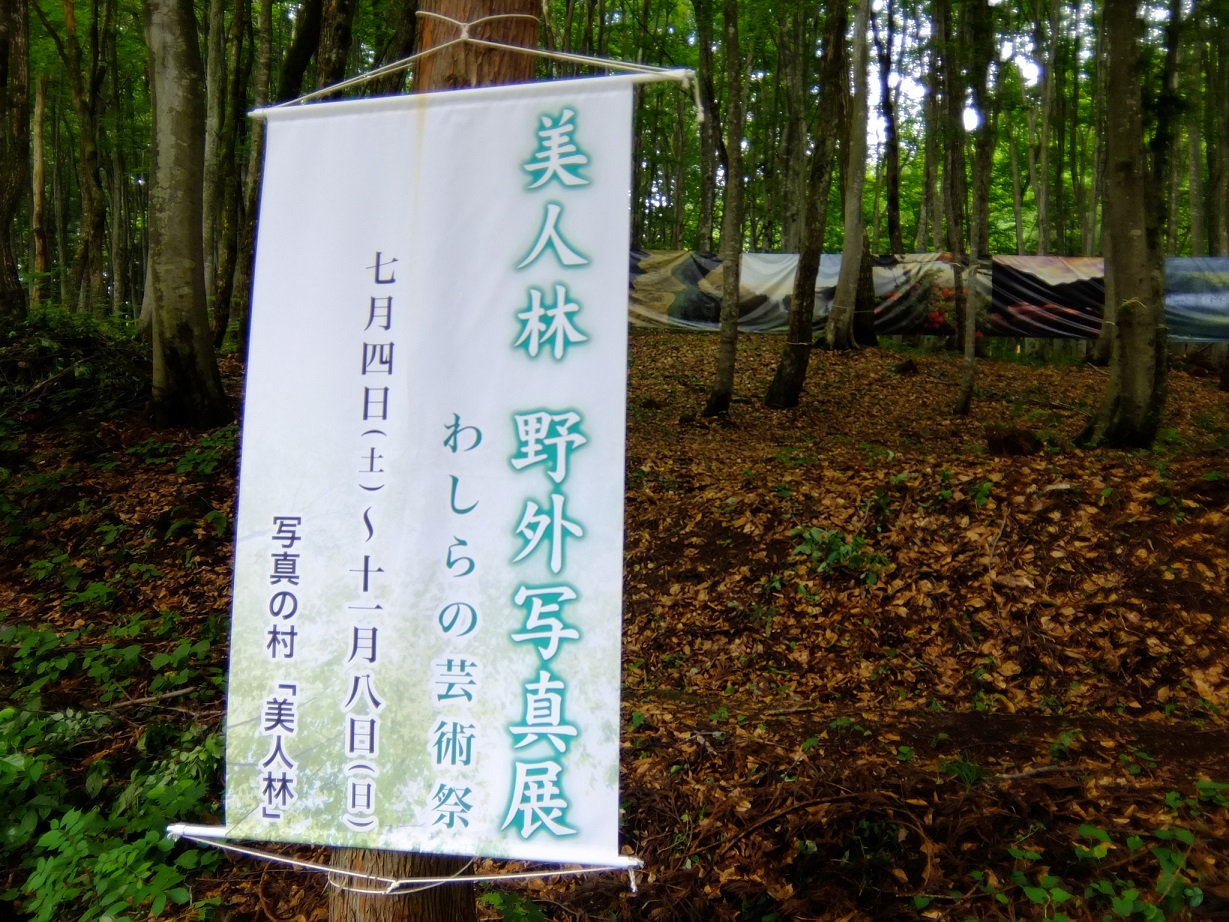 美人林 野外写真展
わしらの芸術祭
七月四日(土)～十一月八日(日)
写真の村「美人林」